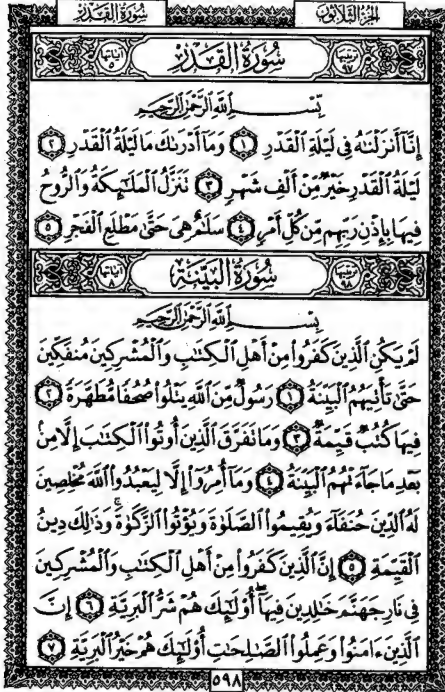 سُورَةُ القَدْرِ الجُزْءُ الثَّلَاثُونَ
ترتيبها ٩٧ سُورَةُ الْقَدْرِ آياتها ٥
بِسْمِ اللَّهِ الرَّحْمَٰنِ الرَّحِيمِ
إِنَّآ أَنزَلْنَٰهُ فِى لَيْلَةِ ٱلْقَدْرِ ١ وَمَآ أَدْرَىٰكَ مَا لَيْلَةُ ٱلْقَدْرِ ٢
لَيْلَةُ ٱلْقَدْرِ خَيْرٌ مِّنْ أَلْفِ شَهْرٍ ٣ تَنَزَّلُ ٱلْمَلَٰٓئِكَةُ وَٱلرُّوحُ
فِيهَا بِإِذْنِ رَبِّهِم مِّن كُلِّ أَمْرٍ ٤ سَلَٰمٌ هِىَ حَتَّىٰ مَطْلَعِ ٱلْفَجْرِ ٥
ترتيبها ٩٨ سُورَةُ الْبَيِّنَةِ آياتها ٨
بِسْمِ اللَّهِ الرَّحْمَٰنِ الرَّحِيمِ
لَمْ يَكُنِ ٱلَّذِينَ كَفَرُوا۟ مِنْ أَهْلِ ٱلْكِتَٰبِ وَٱلْمُشْرِكِينَ مُنفَكِّينَ
حَتَّىٰ تَأْتِيَهُمُ ٱلْبَيِّنَةُ ١ رَسُولٌ مِّنَ ٱللَّهِ يَتْلُوا۟ صُحُفًا مُّطَهَّرَةً ٢
فِيهَا كُتُبٌ قَيِّمَةٌ ٣ وَمَا تَفَرَّقَ ٱلَّذِينَ أُوتُوا۟ ٱلْكِتَٰبَ إِلَّا مِنۢ
بَعْدِ مَا جَآءَتْهُمُ ٱلْبَيِّنَةُ ٤ وَمَآ أُمِرُوٓا۟ إِلَّا لِيَعْبُدُوا۟ ٱللَّهَ مُخْلِصِينَ
لَهُ ٱلدِّينَ حُنَفَآءَ وَيُقِيمُوا۟ ٱلصَّلَوٰةَ وَيُؤْتُوا۟ ٱلزَّكَوٰةَ ۚ وَذَٰلِكَ دِينُ
ٱلْقَيِّمَةِ ٥ إِنَّ ٱلَّذِينَ كَفَرُوا۟ مِنْ أَهْلِ ٱلْكِتَٰبِ وَٱلْمُشْرِكِينَ
فِى نَارِ جَهَنَّمَ خَٰلِدِينَ فِيهَآ ۚ أُو۟لَٰٓئِكَ هُمْ شَرُّ ٱلْبَرِيَّةِ ٦ إِنَّ
ٱلَّذِينَ ءَامَنُوا۟ وَعَمِلُوا۟ ٱلصَّٰلِحَٰتِ أُو۟لَٰٓئِكَ هُمْ خَيْرُ ٱلْبَرِيَّةِ ٧
٥٩٨